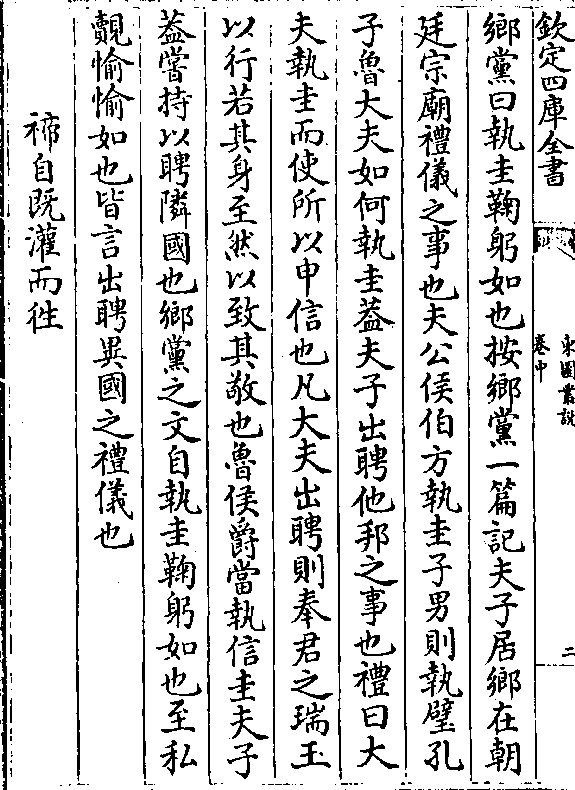 欽定四庫全書
東園叢說
卷中
二
鄉黨曰執圭鞠躬如也按鄉黨一篇記夫子居鄉在朝
廷宗廟禮儀之事也夫公侯伯方執圭子男則執璧孔
子魯大夫如何執圭葢夫子出聘他邦之事也禮曰大
夫執圭而使所以申信也凡大夫出聘則奉君之瑞玉
以行若其身至然以致其敬也魯侯爵當執信圭夫子
葢嘗持以聘隣國也鄉黨之文自執圭鞠躬如也至私
覿愉愉如也皆言出聘異國之禮儀也
禘自既灌而徃